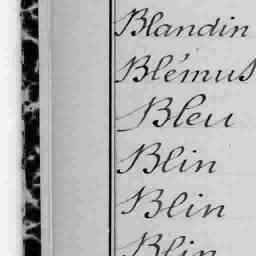 Blandin
Blémus
Bleu
Blin
Blin
Blin